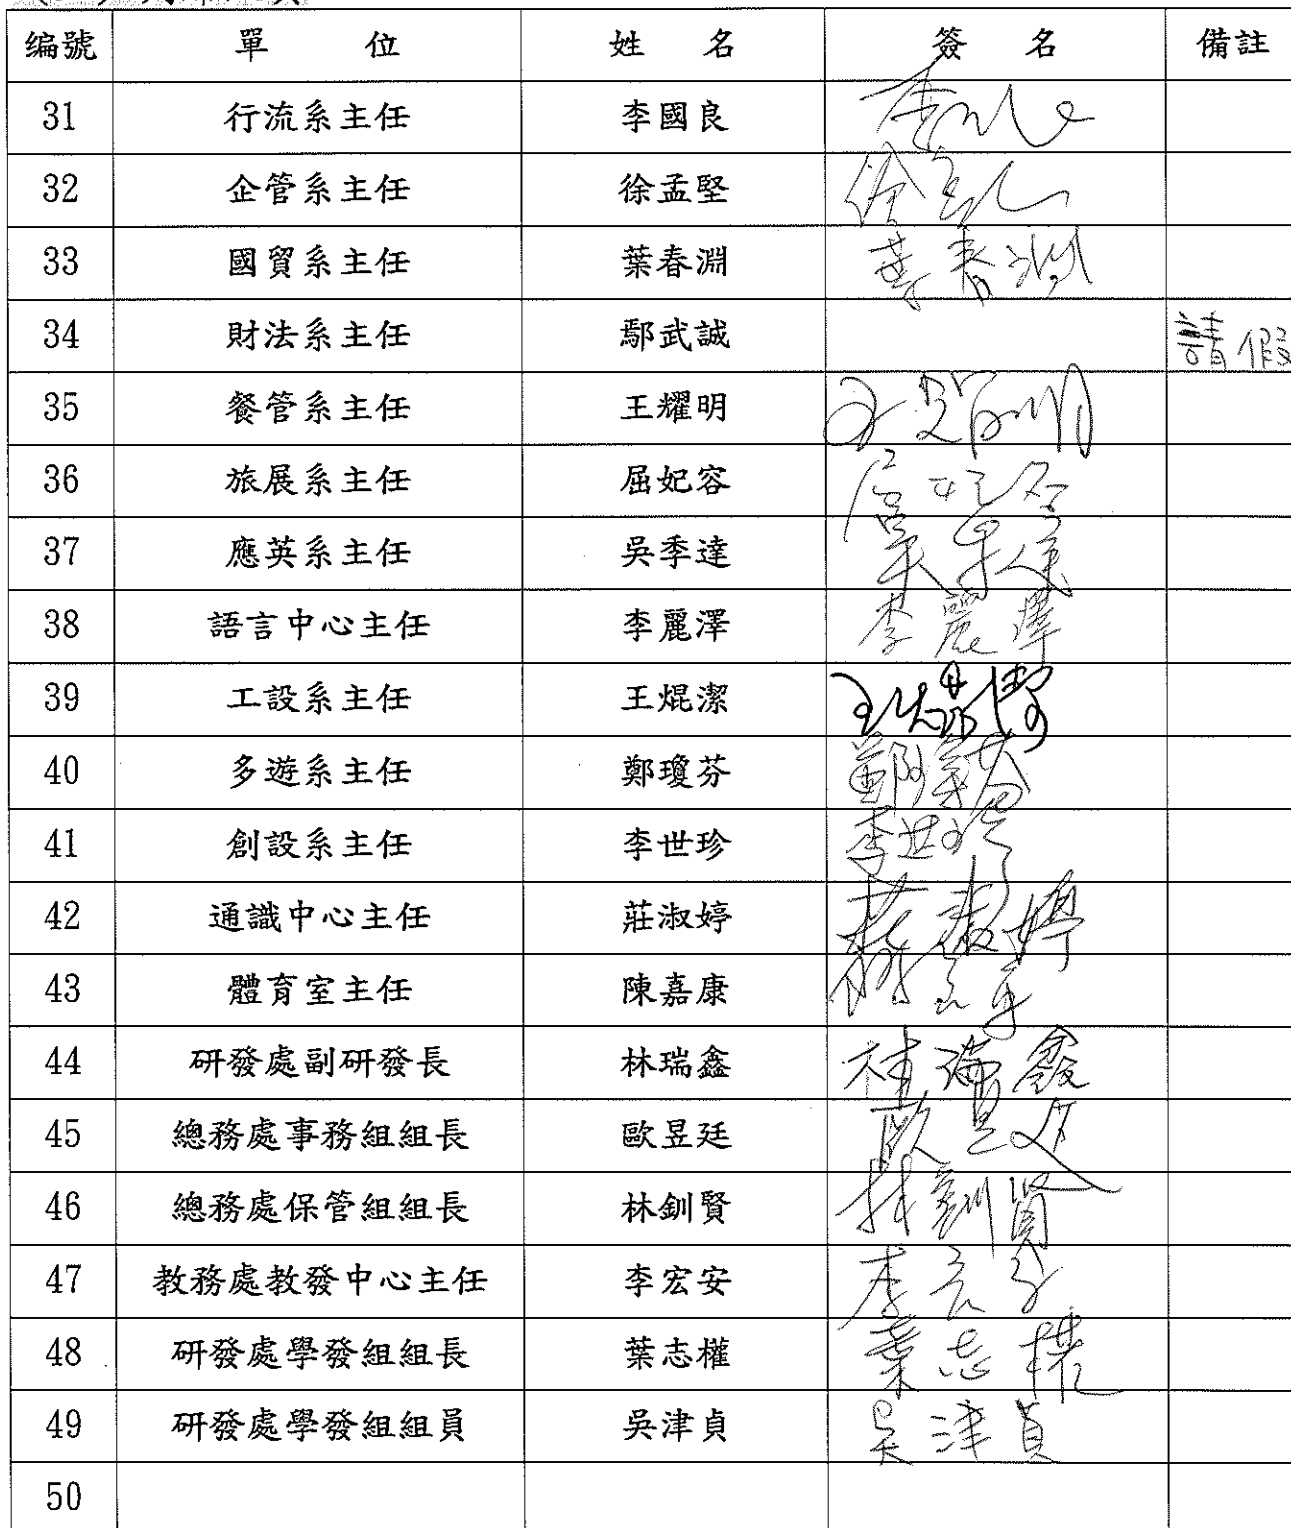 編號 單 位 姓 名 簽 名 備註
31 行流系主任 李國良
32 企管系主任 徐孟堅 徐孟堅
33 國貿系主任 葉春淵 葉春淵
34 財法系主任 鄢武誠 請假
35 餐管系主任 王耀明 王耀明
36 旅展系主任 屈妃容 屈妃容
37 應英系主任 吳季達 吳季達
38 語言中心主任 李麗澤 李麗澤
39 工設系主任 王焜潔 王焜潔
40 多遊系主任 鄭瓊芬 鄭瓊芬
41 創設系主任 李世珍 李世珍
42 通識中心主任 莊淑婷 莊淑婷
43 體育室主任 陳嘉康
44 研發處副研發長 林瑞鑫 林瑞鑫
45 總務處事務組組長 歐昱廷
46 總務處保管組組長 林釧賢 林釧賢
47 教務處教發中心主任 李宏安 李宏安
48 研發處學發組組長 葉志權 葉志權
49 研發處學發組組員 吳津貞 吳津貞
50